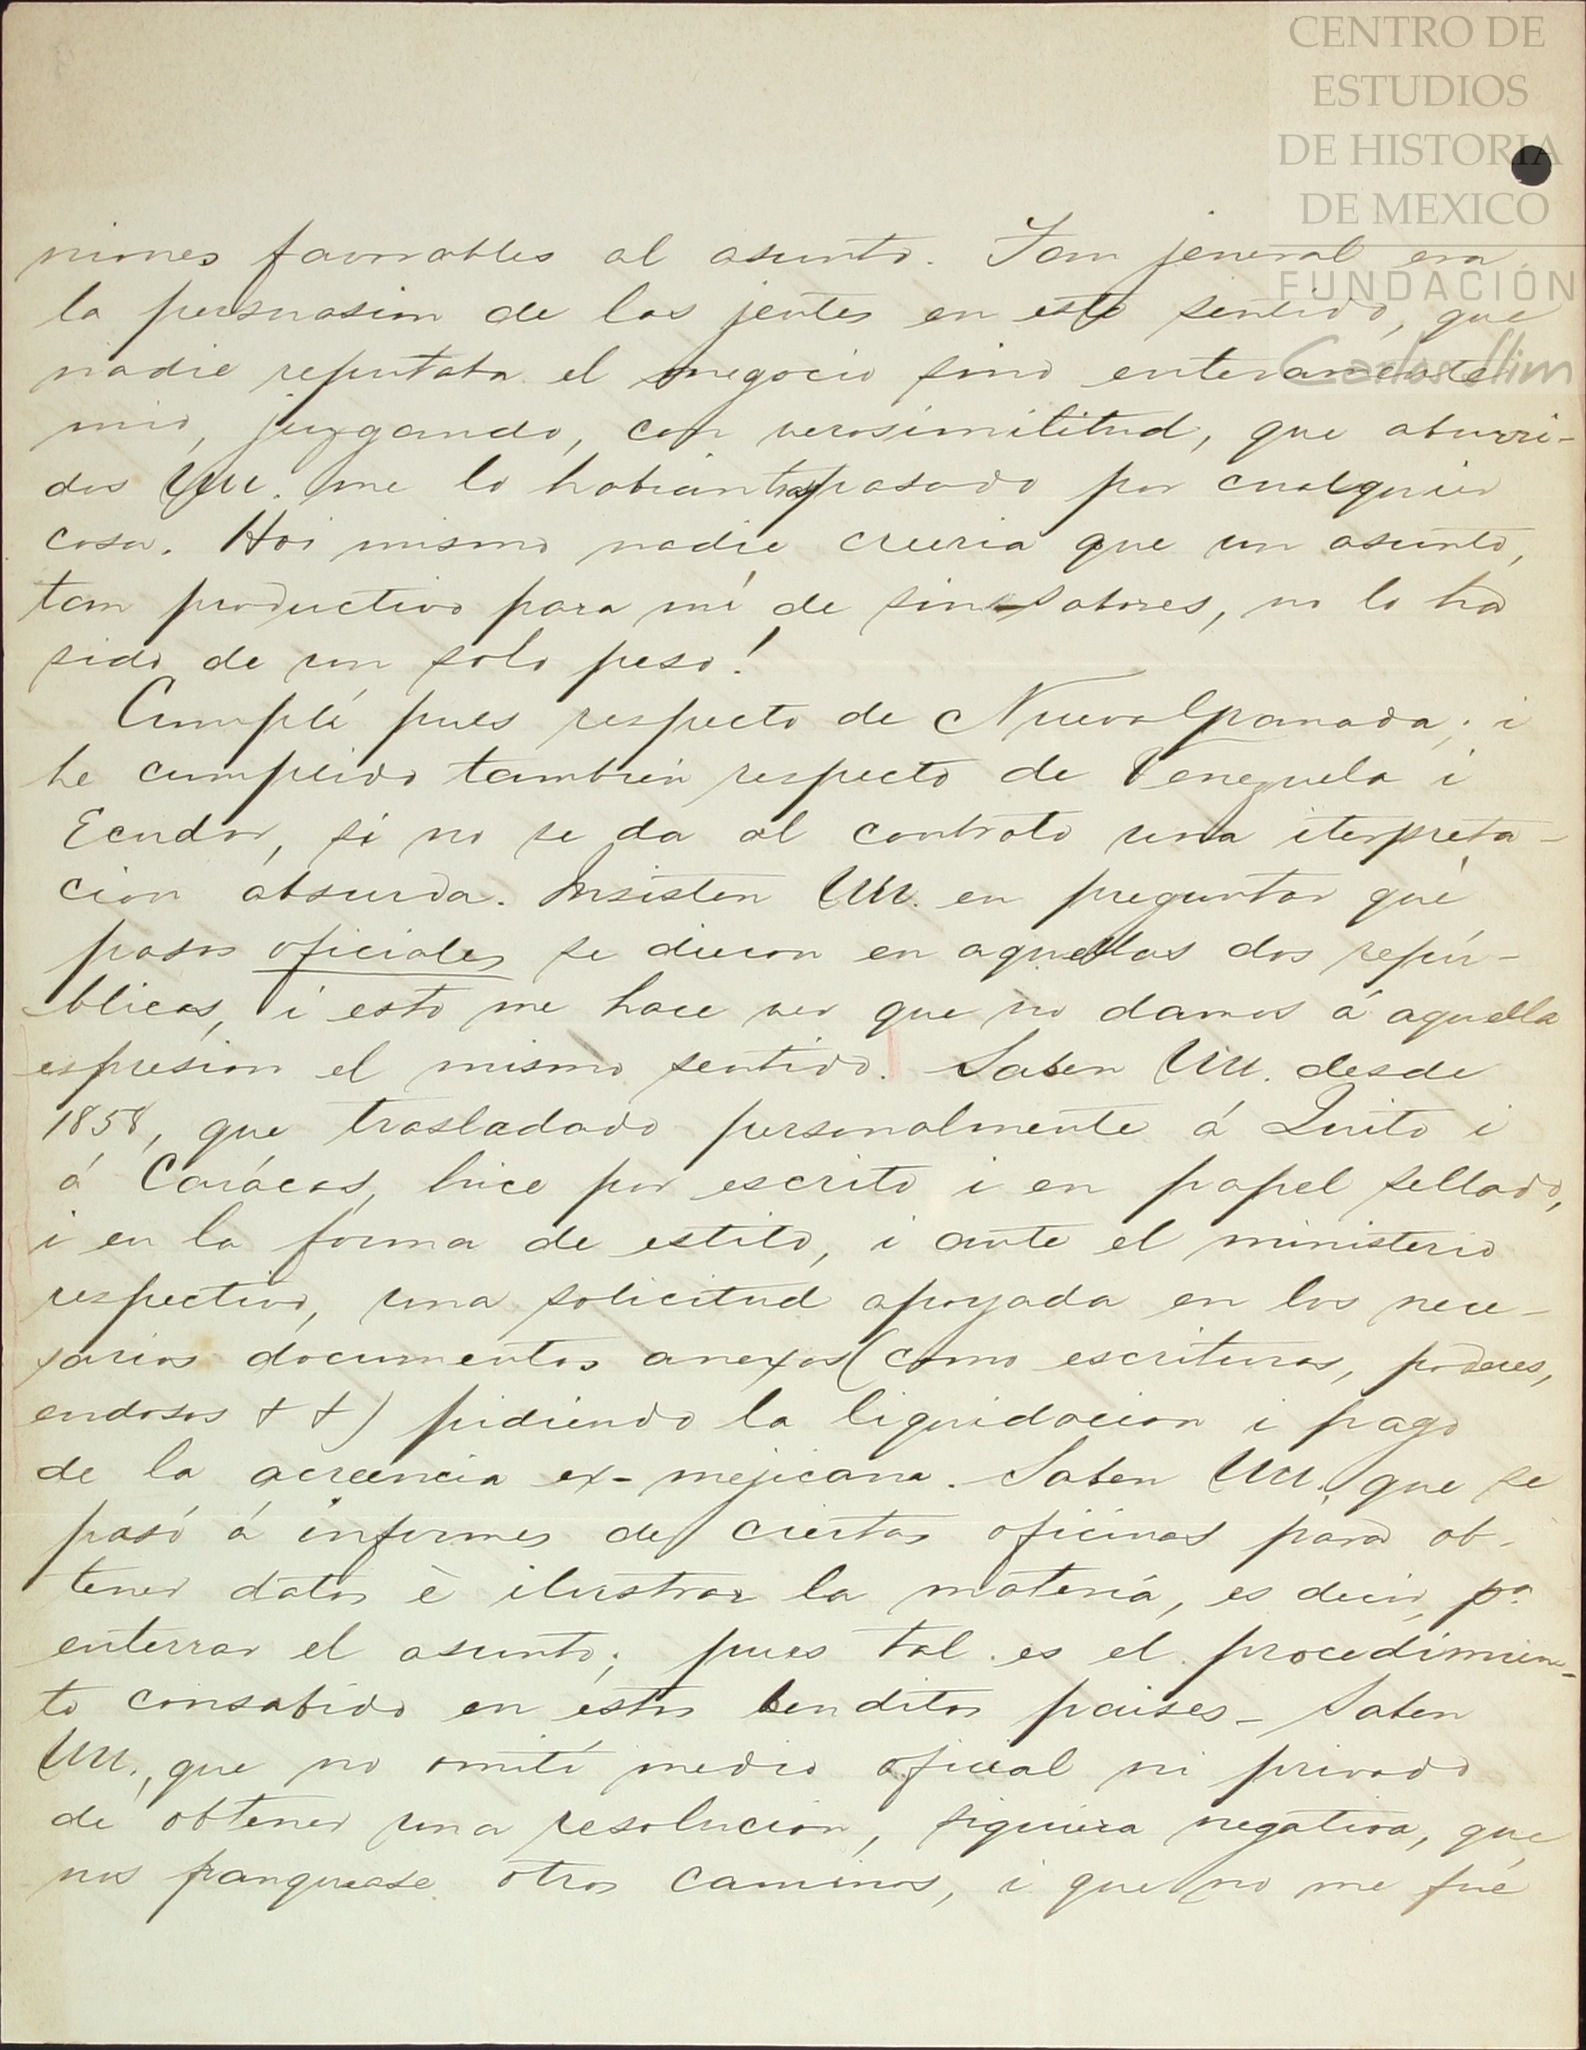 CENTRO DE
ESTUDIOS
DE HISTORIA
DE MEXICO
FUNDACIÓN
Carlos Slim
niones favorables al asunto. Tan jeneral era
la persuasion de las jentes en este sentido, que
nadie reputaba el negocio sino enteramente
mio, juzgando, con verosimilitud, que aburri-
dos UU. me lo habian traspasado por cualquier
cosa. Hoi mismo nadie creeria que un asunto,
tan productivo para mí de sinsabores, no lo ha
sido de un solo peso!
Cumplí pues respecto de Nueva Granada; i
he cumplido tambien respecto de Venezuela i
Ecudor, si no se da al contrato una iterpreta-
cion absurda. Insisten UU. en preguntar qué
pasos oficiales se dieron en aquellas dos repú-
blicas, i esto me hace ver que no damos á aquella
espresion el mismo sentido. Saben UU. desde
1858, que trasladado personalmente á Quito i
á Carácas, hice por escrito i en papel sellado,
i en la forma de estilo, i ante el ministerio
respectivo, una solicitud apoyada en los nece-
sarios documentos anexos (como escrituras, poderes,
endosos & &) pidiendo la liquidacion i pago
de la acreencia ex-mejicana. Saben UU. que se
pasó á informes de ciertas oficinas para ob-
tener datos è ilustrar la materia, es decir, pa.
enterrar el asunto; pues tal es el procedimien-
to consabido en estos benditos paises - Saben
UU., que no omití medio oficial ni privado
de obtener una resolucion, siquiera negativa, que
nos franquease otros caminos, i que no me fué